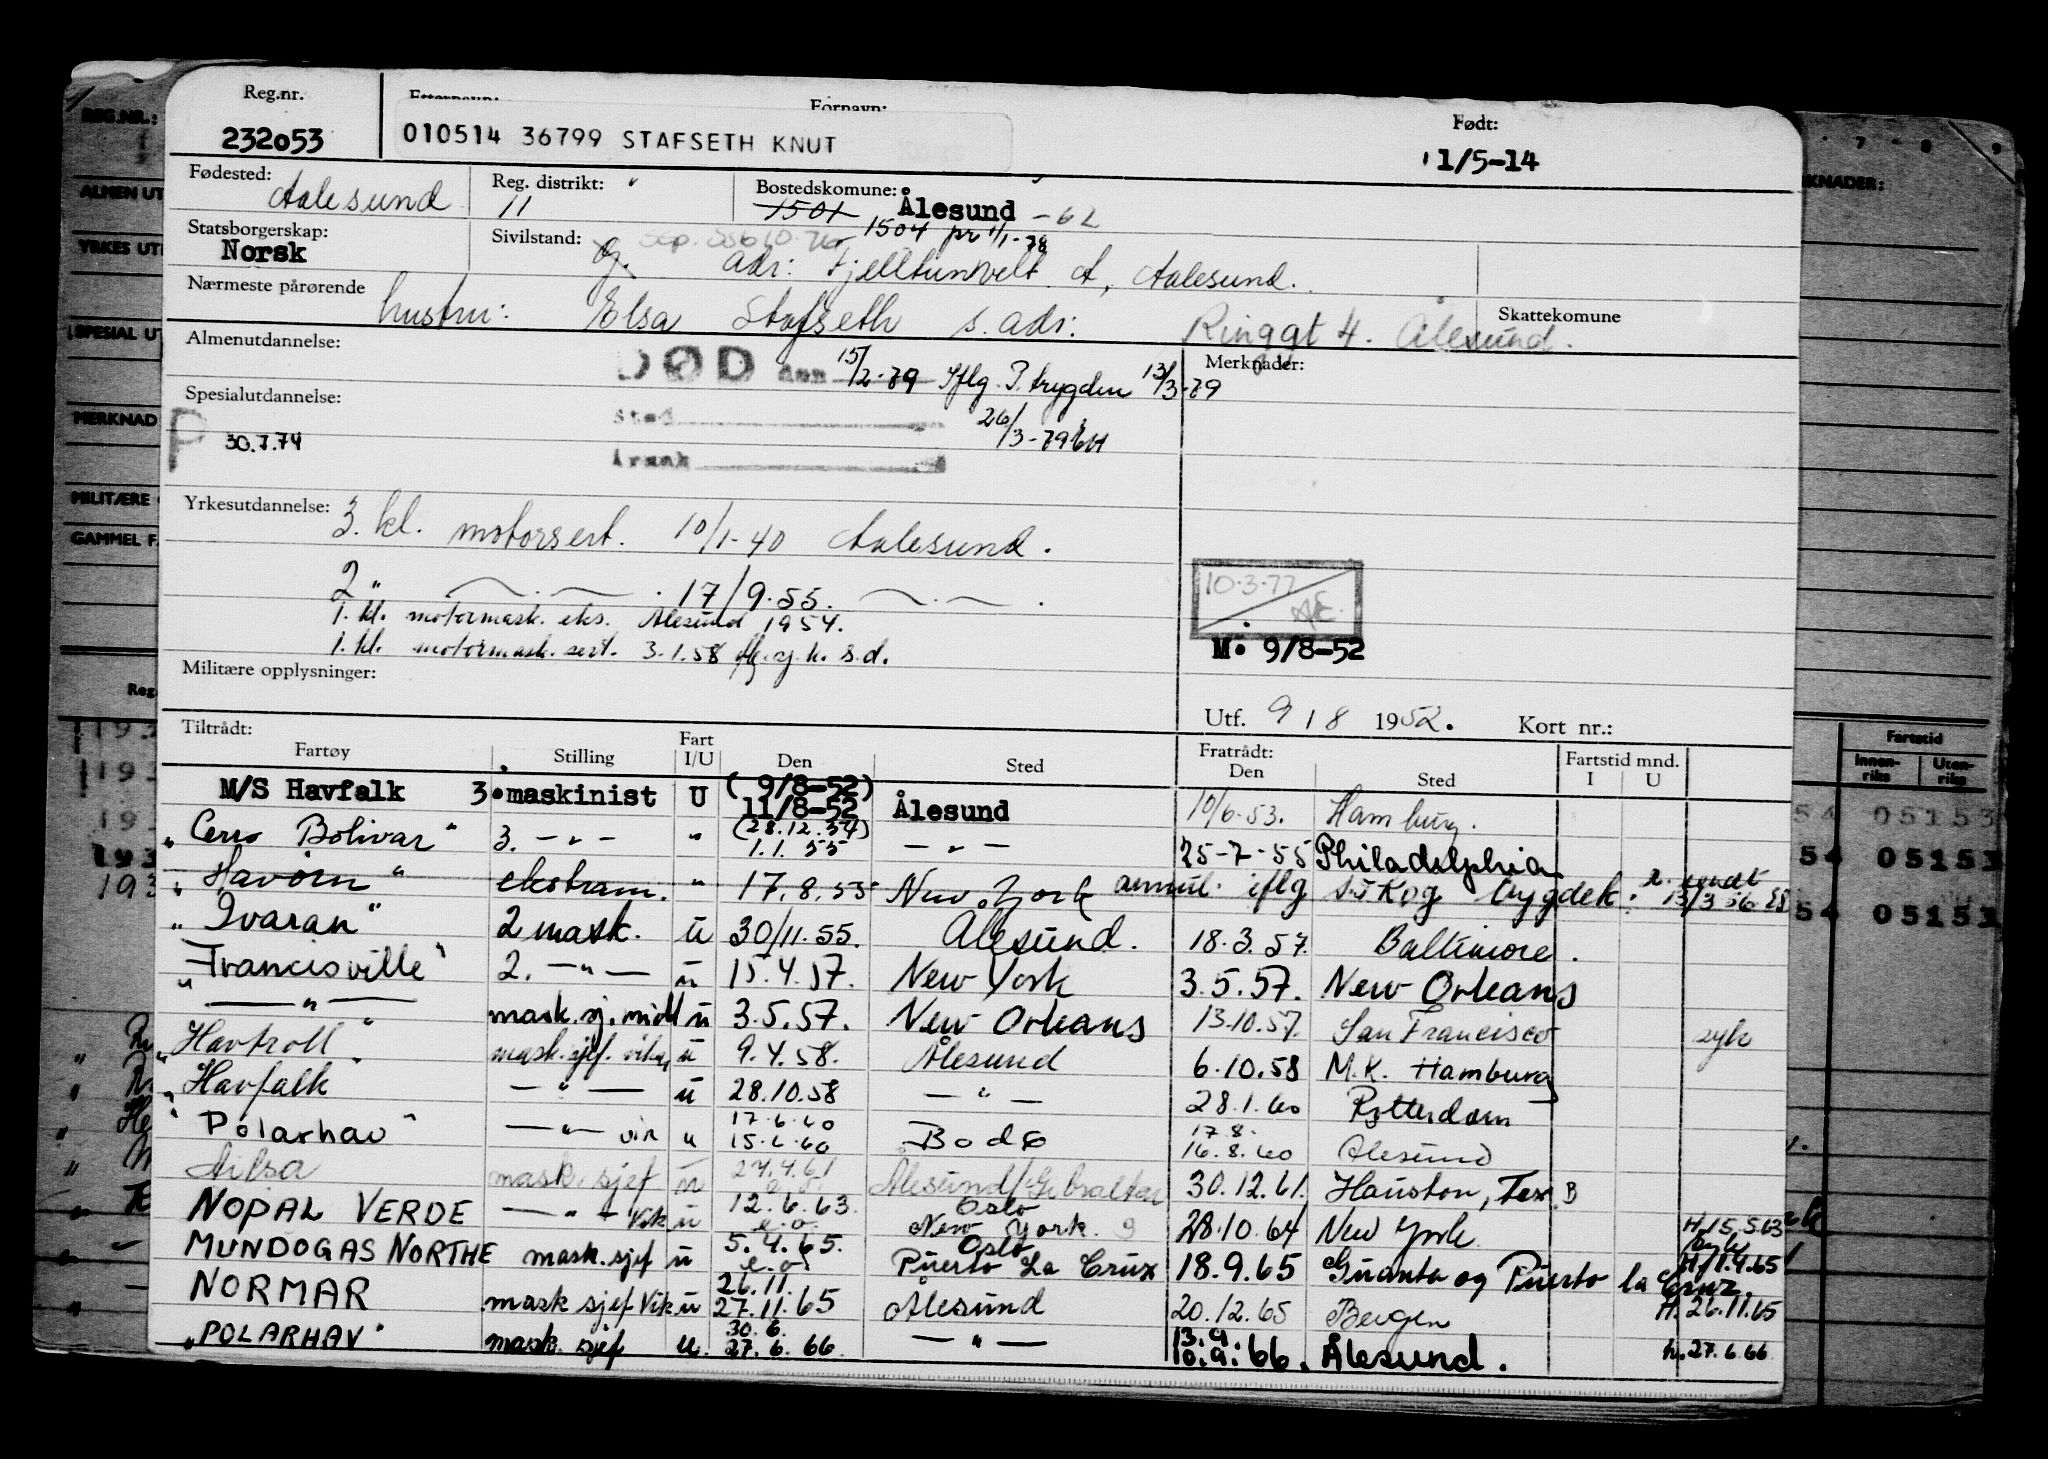 Reg.nr. Fornavn: Født:
232053 010514 36799 STAFSETH KNUT 1/5-14
Fødested: Aalesund Reg. distrikt: 11 Bostedskomune: 1501 Ålesund -62
1504 pr 1/1-78
Statsborgerskap: Norsk Sivilstand: g. adr: Fjelltunveit A, Aalesund.
Nærmeste pårørende hustru: Elsa Stafseth s. adr: Ringgt 4. Ålesund. Skattekomune
Almenutdannelse: DØD den 15/2-79 Iflg. P. trygden 13/3-79 Merknader:
Spesialutdannelse: Sted 26/3-79
P 30.7.74 Årsak
Yrkesutdannelse: 3. kl. motorsert. 10/1-40 Aalesund.
2 " 17/9.55.
1. kl. motormask. eks. Ålesund 1954.
1. kl. motormask. sert. 3.1.58 s.d.
10.3.77
M. 9/8-52
Militære opplysninger:
Utf. 9/8 1952. Kort nr.:
Tiltrådt: Fratrådt: Fartstid mnd.
Fartøy Stilling Fart I/U Den Sted Den Sted I U
M/S Havfalk 3. maskinist U (9/8-52) 11/8-52 Ålesund 10/6-53. Hamburg.
"Cerro Bolivar" 3. -"- " (28.12.54) 1.1.55 -"- 25-7-55 Philadelphia
"Havörn" ekstram. " 17.8.55 New York annul. iflg trygdek. 13/3 56
"Ivaran" 2 mask. u 30/11.55. Ålesund. 18.3.57. Baltimore.
"Francisville" 2. -"- u 15.4.57. New York 3.5.57. New Orleans
-"- mask.sj. midl u 3.5.57. New Orleans 13.10.57. San Francisco syk
"Havtroll" mask.sjef. vikar u 9.4.58. Ålesund 6.10.58 M.K. Hamburg
"Havfalk" -"- u 28.10.58 -"- 28.1.60 Rotterdam
"Polarhav" -"- vik u 17.6.60 15.6.60 Bodö 17.8. 16.8.60 Ålesund
mask. sjef u 27.4.61 Ålesund/Gibraltar 30.12.61. Houston, Tex. B
NOPAL VERDE -"- Vik u 12.6.63. e.o. Oslo New York. 28.10.64 New York H. 15.5.63
MUNDOGAS NORTHE mask.sjef u 5.4.65. e.o. Oslo Puerto La Cruz 18.9.65 Guanta og Puerto la Cruz. H. 1.4.65
NORMAR mask sjef Vik u 26.11. 27.11.65 Ålesund 20.12.65 Bergen H. 26.11.65
"POLARHAV" mask. sjef u. 30.6. 27.6.66. -"- 13.9 10.9.66. Ålesund. h. 27.6.66
REG.NR.:
ALMEN UT
YRKES UT
SPESIAL UT
MERKNAD
MILITÆRE
GAMMEL F.
7 8 9
KNADER:
Fartstid
Innen-riks Uten-riks
54 05153
54 05153
54 05153